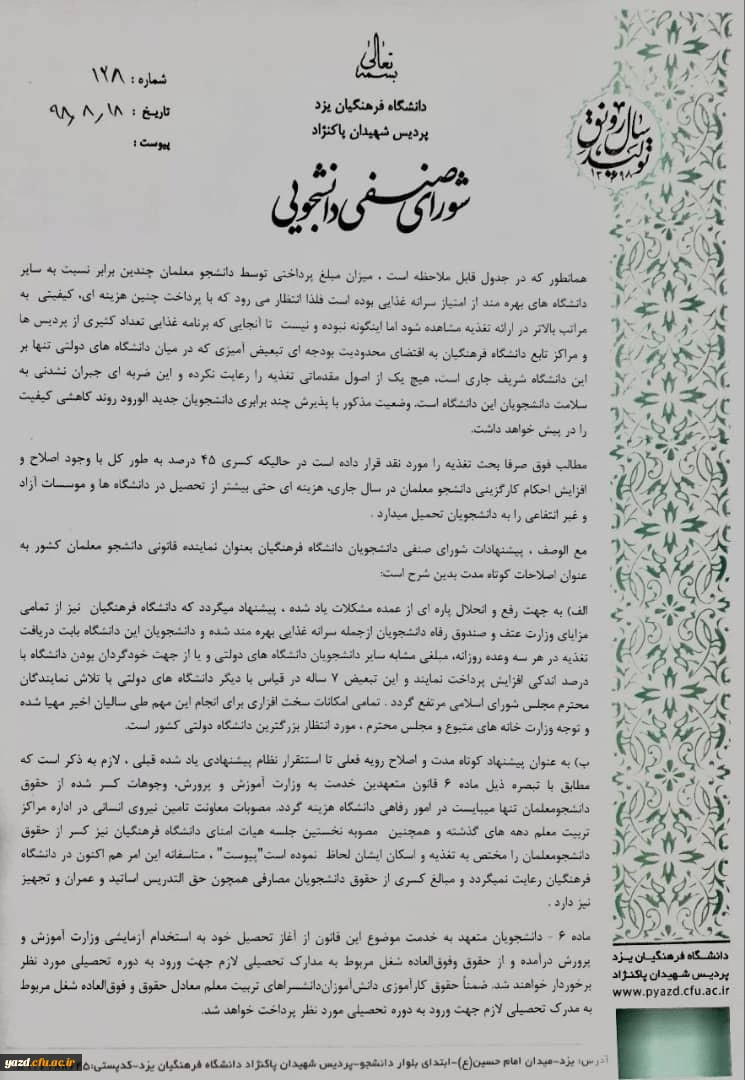 بسمه تعالی
دانشگاه فرهنگیان یزد
پردیس شهیدان پاکنژاد
شورای صنفی دانشجویی
شماره : ۱۲۸
تاریخ : ۹۸,۸,۱۸
پیوست :
سال رونق
تولید
۱۳۹۸
همانطور که در جدول قابل ملاحظه است ، میزان مبلغ پرداختی توسط دانشجو معلمان چندین برابر نسبت به سایر
دانشگاه های بهره مند از امتیاز سرانه غذایی بوده است فلذا انتظار می رود که با پرداخت چنین هزینه ای، کیفیتی به
مراتب بالاتر در ارائه تغذیه مشاهده شود اما اینگونه نبوده و نیست تا آنجایی که برنامه غذایی تعداد کثیری از پردیس ها
و مراکز تابع دانشگاه فرهنگیان به اقتضای محدودیت بودجه ای تبعیض آمیزی که در میان دانشگاه های دولتی تنها بر
این دانشگاه شریف جاری است، هیچ یک از اصول مقدماتی تغذیه را رعایت نکرده و این ضربه ای جبران نشدنی به
سلامت دانشجویان این دانشگاه است. وضعیت مذکور با پذیرش چند برابری دانشجویان جدید الورود روند کاهشی کیفیت
را در پیش خواهد داشت.
مطالب فوق صرفا بحث تغذیه را مورد نقد قرار داده است در حالیکه کسری ۴۵ درصد به طور کل با وجود اصلاح و
افزایش احکام کارگزینی دانشجو معلمان در سال جاری، هزینه ای حتی بیشتر از تحصیل در دانشگاه ها و موسسات آزاد
و غیر انتفاعی را به دانشجویان تحمیل میدارد .
مع الوصف ، پیشنهادات شورای صنفی دانشجویان دانشگاه فرهنگیان بعنوان نماینده قانونی دانشجو معلمان کشور به
عنوان اصلاحات کوتاه مدت بدین شرح است:
الف) به جهت رفع و انحلال پاره ای از عمده مشکلات یاد شده ، پیشنهاد میگردد که دانشگاه فرهنگیان نیز از تمامی
مزایای وزارت عتف و صندوق رفاه دانشجویان ازجمله سرانه غذایی بهره مند شده و دانشجویان این دانشگاه بابت دریافت
تغذیه در هر سه وعده روزانه، مبلغی مشابه سایر دانشجویان دانشگاه های دولتی و یا از جهت خودگردان بودن دانشگاه با
درصد اندکی افزایش پرداخت نمایند و این تبعیض ۷ ساله در قیاس با دیگر دانشگاه های دولتی با تلاش نمایندگان
محترم مجلس شورای اسلامی مرتفع گردد . تمامی امکانات سخت افزاری برای انجام این مهم طی سالیان اخیر مهیا شده
و توجه وزارت خانه های متبوع و مجلس محترم ، مورد انتظار بزرگترین دانشگاه دولتی کشور است.
ب) به عنوان پیشنهاد کوتاه مدت و اصلاح رویه فعلی تا استتقرار نظام پیشنهادی یاد شده قبلی ، لازم به ذکر است که
مطابق با تبصره ذیل ماده ۶ قانون متعهدین خدمت به وزارت آموزش و پرورش، وجوهات کسر شده از حقوق
دانشجومعلمان تنها میبایست در امور رفاهی دانشگاه هزینه گردد. مصوبات معاونت تامین نیروی انسانی در اداره مراکز
تربیت معلم دهه های گذشته و همچنین مصوبه نخستین جلسه هیات امنای دانشگاه فرهنگیان نیز کسر از حقوق
دانشجومعلمان را مختص به تغذیه و اسکان ایشان لحاظ نموده است"پیوست" ، متاسفانه این امر هم اکنون در دانشگاه
فرهنگیان رعایت نمیگردد و مبالغ کسری از حقوق دانشجویان مصارفی همچون حق التدریس اساتید و عمران و تجهیز
نیز دارد .
ماده ۶ - دانشجویان متعهد به خدمت موضوع این قانون از آغاز تحصیل خود به استخدام آزمایشی وزارت آموزش و
پرورش درآمده و از حقوق وفوق‌العاده شغل مربوط به مدارک تحصیلی لازم جهت ورود به دوره تحصیلی مورد نظر
برخوردار خواهند شد. ضمناً حقوق کارآموزی دانش‌آموزان‌دانشسراهای تربیت معلم معادل حقوق و فوق‌العاده شغل مربوط
به مدرک تحصیلی لازم جهت ورود به دوره تحصیلی مورد نظر پرداخت خواهد شد.
دانشگاه فرهنگیان یـزد
پردیس شهیدان پاکنژاد
www.pyazd.cfu.ac.ir
آدرس: یزد-میدان امام حسین(ع)-ابتدای بلوار دانشجو-پردیس شهیدان پاکنژاد دانشگاه فرهنگیان یزد-کدپستی:
yazd.cfu.ac.ir